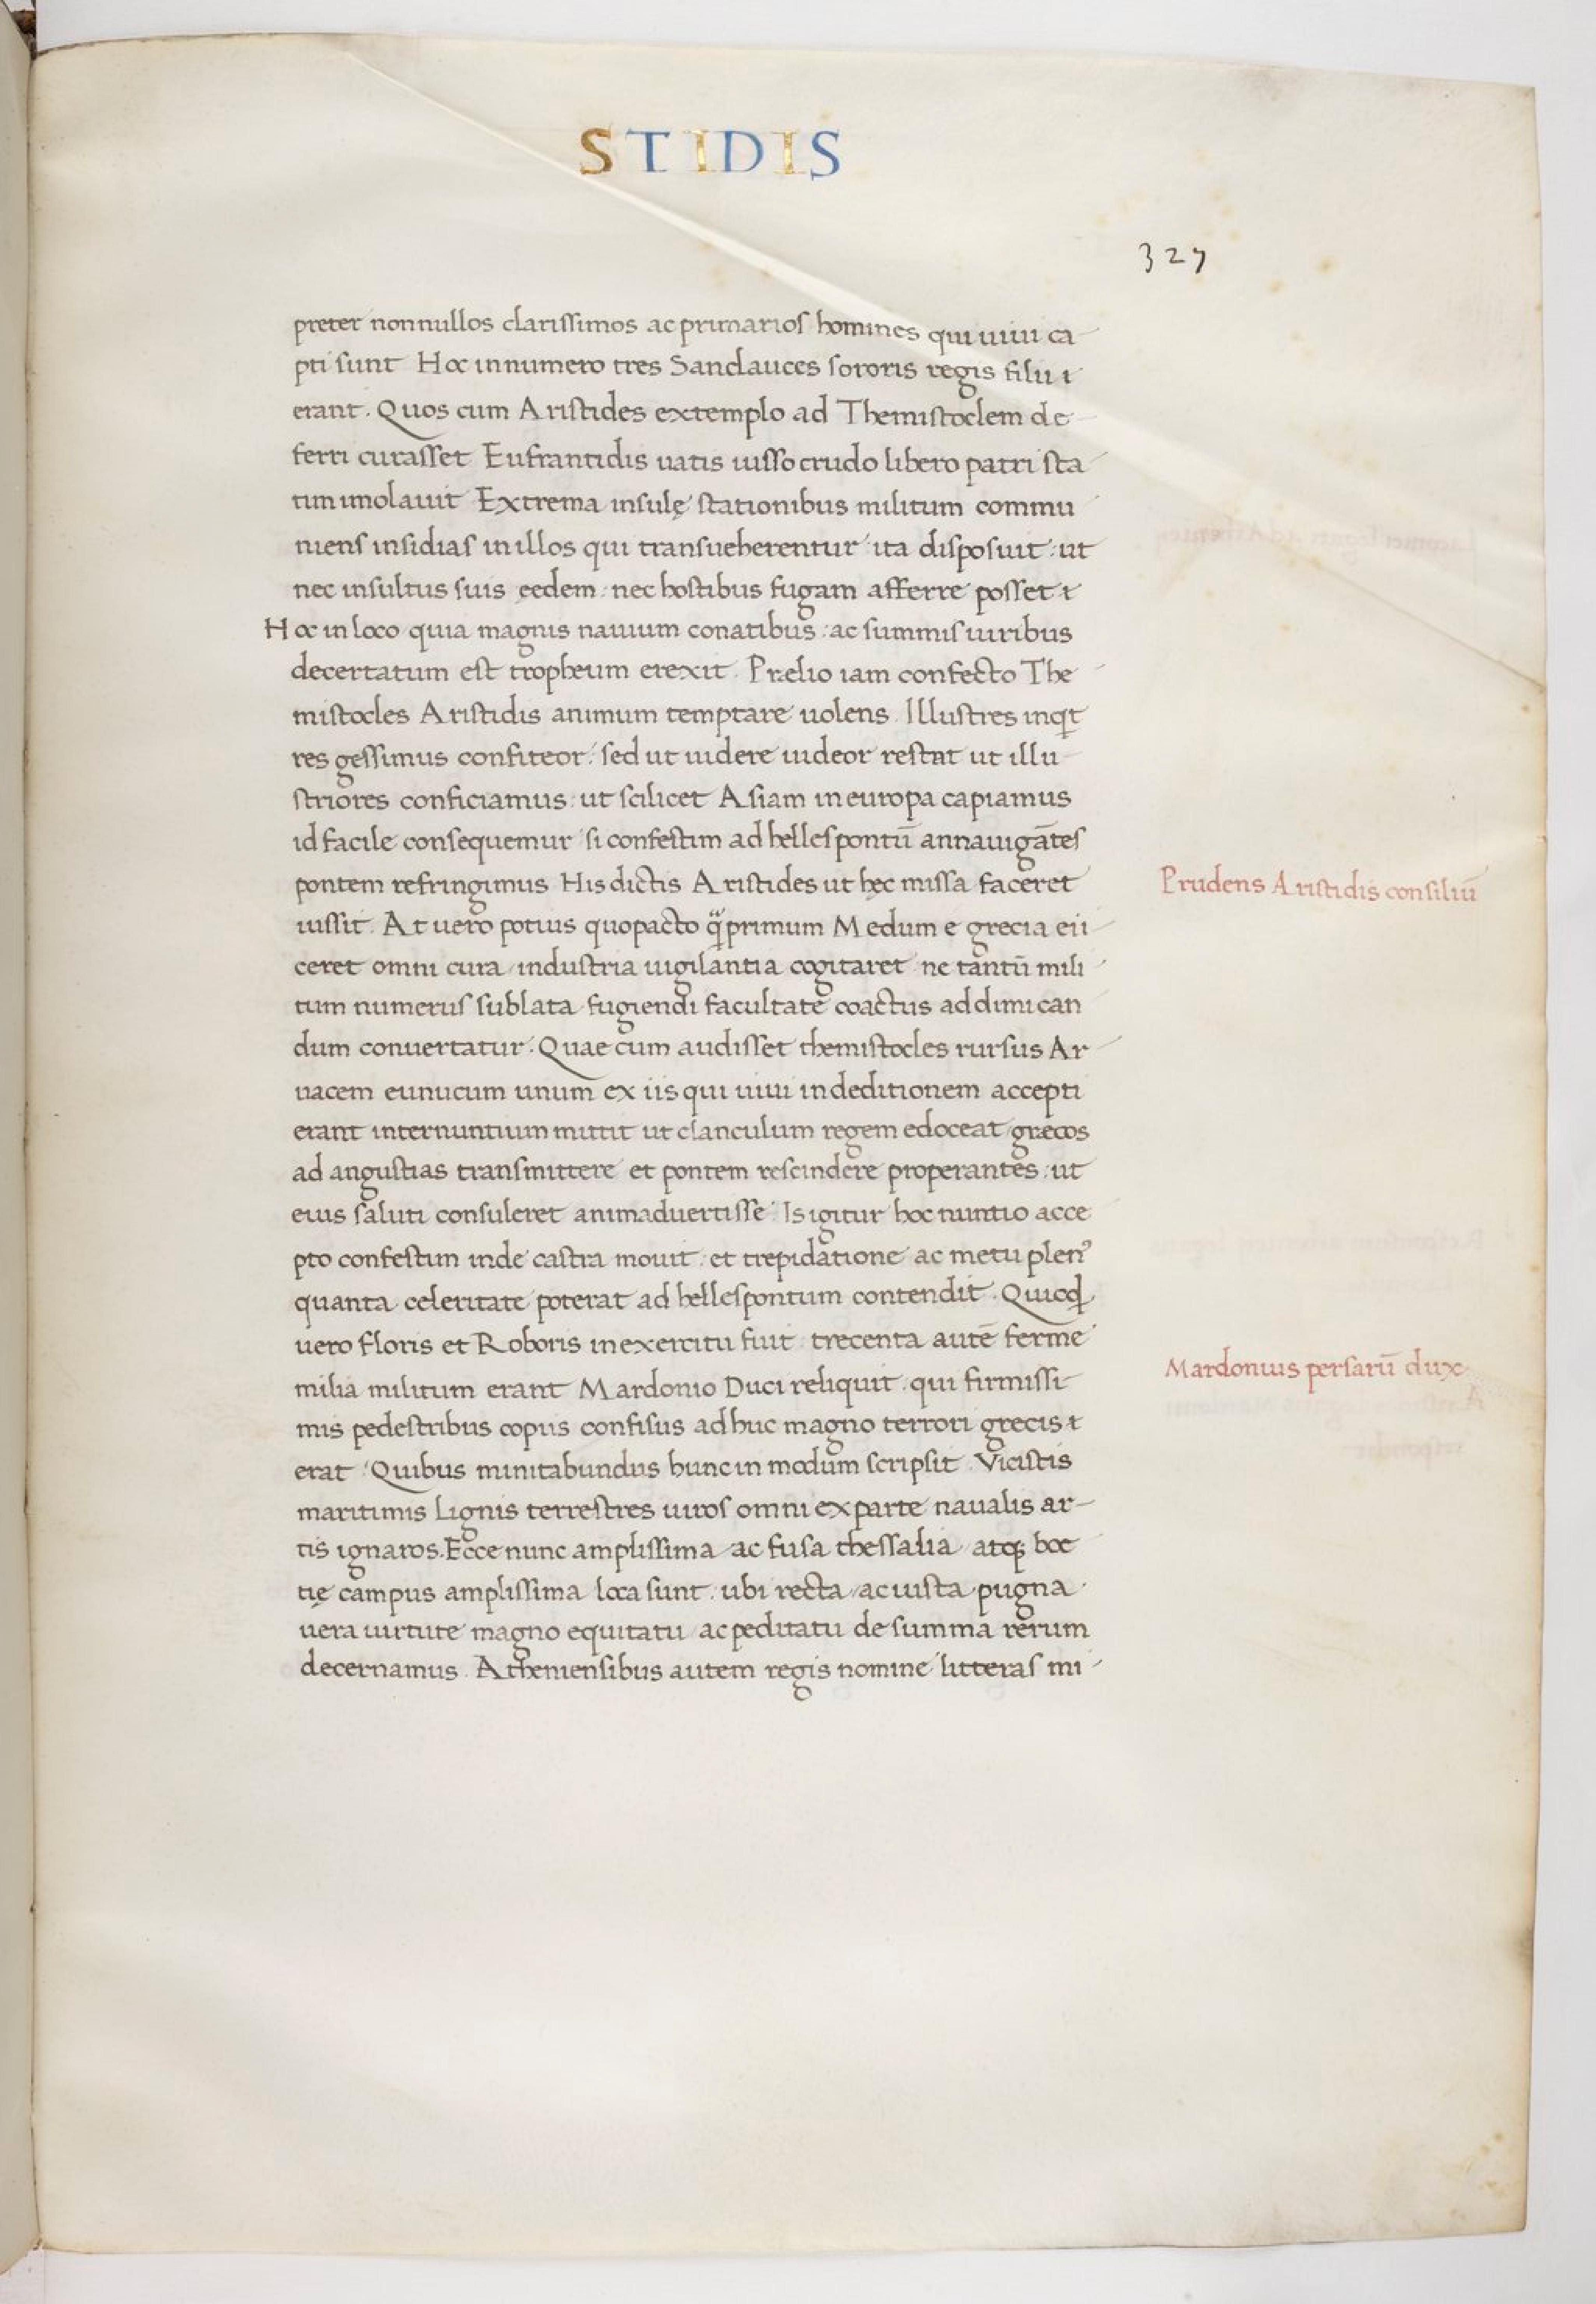 STIDIS
327
preter nonnullos clarissimos ac primarios homines qui uiui ca-
pti sunt Hoc in numero tres Sandauces sororis regis filii
erant. Quos cum Aristides extemplo ad Themistoclem de-
ferri curasset Eufrantidis uatis iusso crudo libero patri sta-
tim imolauit Extrema insulę stationibus militum commu-
niens insidias in illos qui transueherentur ita disposuit: ut
nec insultus suis ędem: nec hostibus fugam afferre posset
Hoc in loco quia magnis nauium conatibus: ac summis uiribus
decertatum est tropheum erexit. Prælio iam confecto The-
mistocles Aristidis animum temptare uolens. Illustres inqt
res gessimus confiteor: sed ut uidere uideor restat ut illu-
striores conficiamus: ut scilicet Asiam in europa capiamus
id facile consequemur si confestim ad hellespontū annauigātes
pontem refringimus His dictis Aristides ut hęc missa faceret
Prudens Aristidis consiliū
iussit. At uero potius quo pacto q̈primum Medum e grecia eii-
ceret omni cura industria uigilantia cogitaret ne tantū mili-
tum numerus sublata fugiendi facultate coactus ad dimican-
dum conuertatur. Quae cum audisset themistocles rursus Ar-
nacem eunucum unum ex iis qui uiui in deditionem accepti
erant internuntium mittit ut clanculum regem edoceat græcos
ad angustias transmittere et pontem rescindere properantes: ut
eius saluti consuleret animaduertisse. Is igitur hoc nuntio acce-
pto confestim inde castra mouit: et trepidatione ac metu plen⁹
quanta celeritate poterat ad hellespontum contendit. Quicqd
uero floris et Roboris in exercitu fuit trecenta autē ferme
milia militum erant Mardonio Duci reliquit. qui firmissi-
Mardonius persarū dux
mis pedestribus copiis confisus adhuc magno terrori grecis
erat. Quibus minitabundus hunc in modum scripsit. Vicistis
maritimis Lignis terrestres uiros omni ex parte naualis ar-
tis ignaros. Ecce nunc amplissima ac fusa thessalia atq; boe
tię campus amplissima loca sunt: ubi recta ac iusta pugna
uera uirtute magno equitatu ac peditatu de summa rerum
decernamus. Atheniensibus autem regis nomine litteras mi-